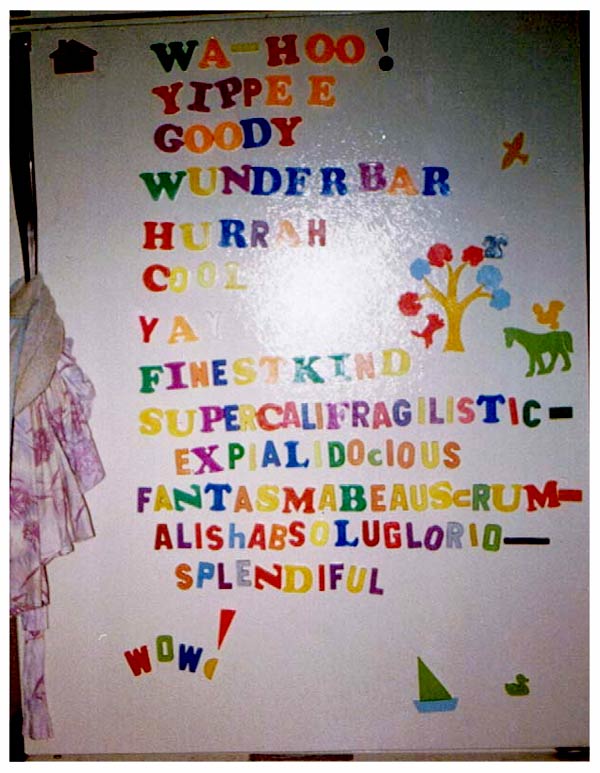 WA-HOO!
YIPPEE
GOODY
WUNDERBAR
HURRAH
COOL
YAY
FINESTKIND
SUPERCALIFRAGILISTIC-
EXPIALIDOcIOUS
FANTASMABEAUScRUM-
ALIShABSOLUGLORIO-
SPLENDIFUL
WOW!